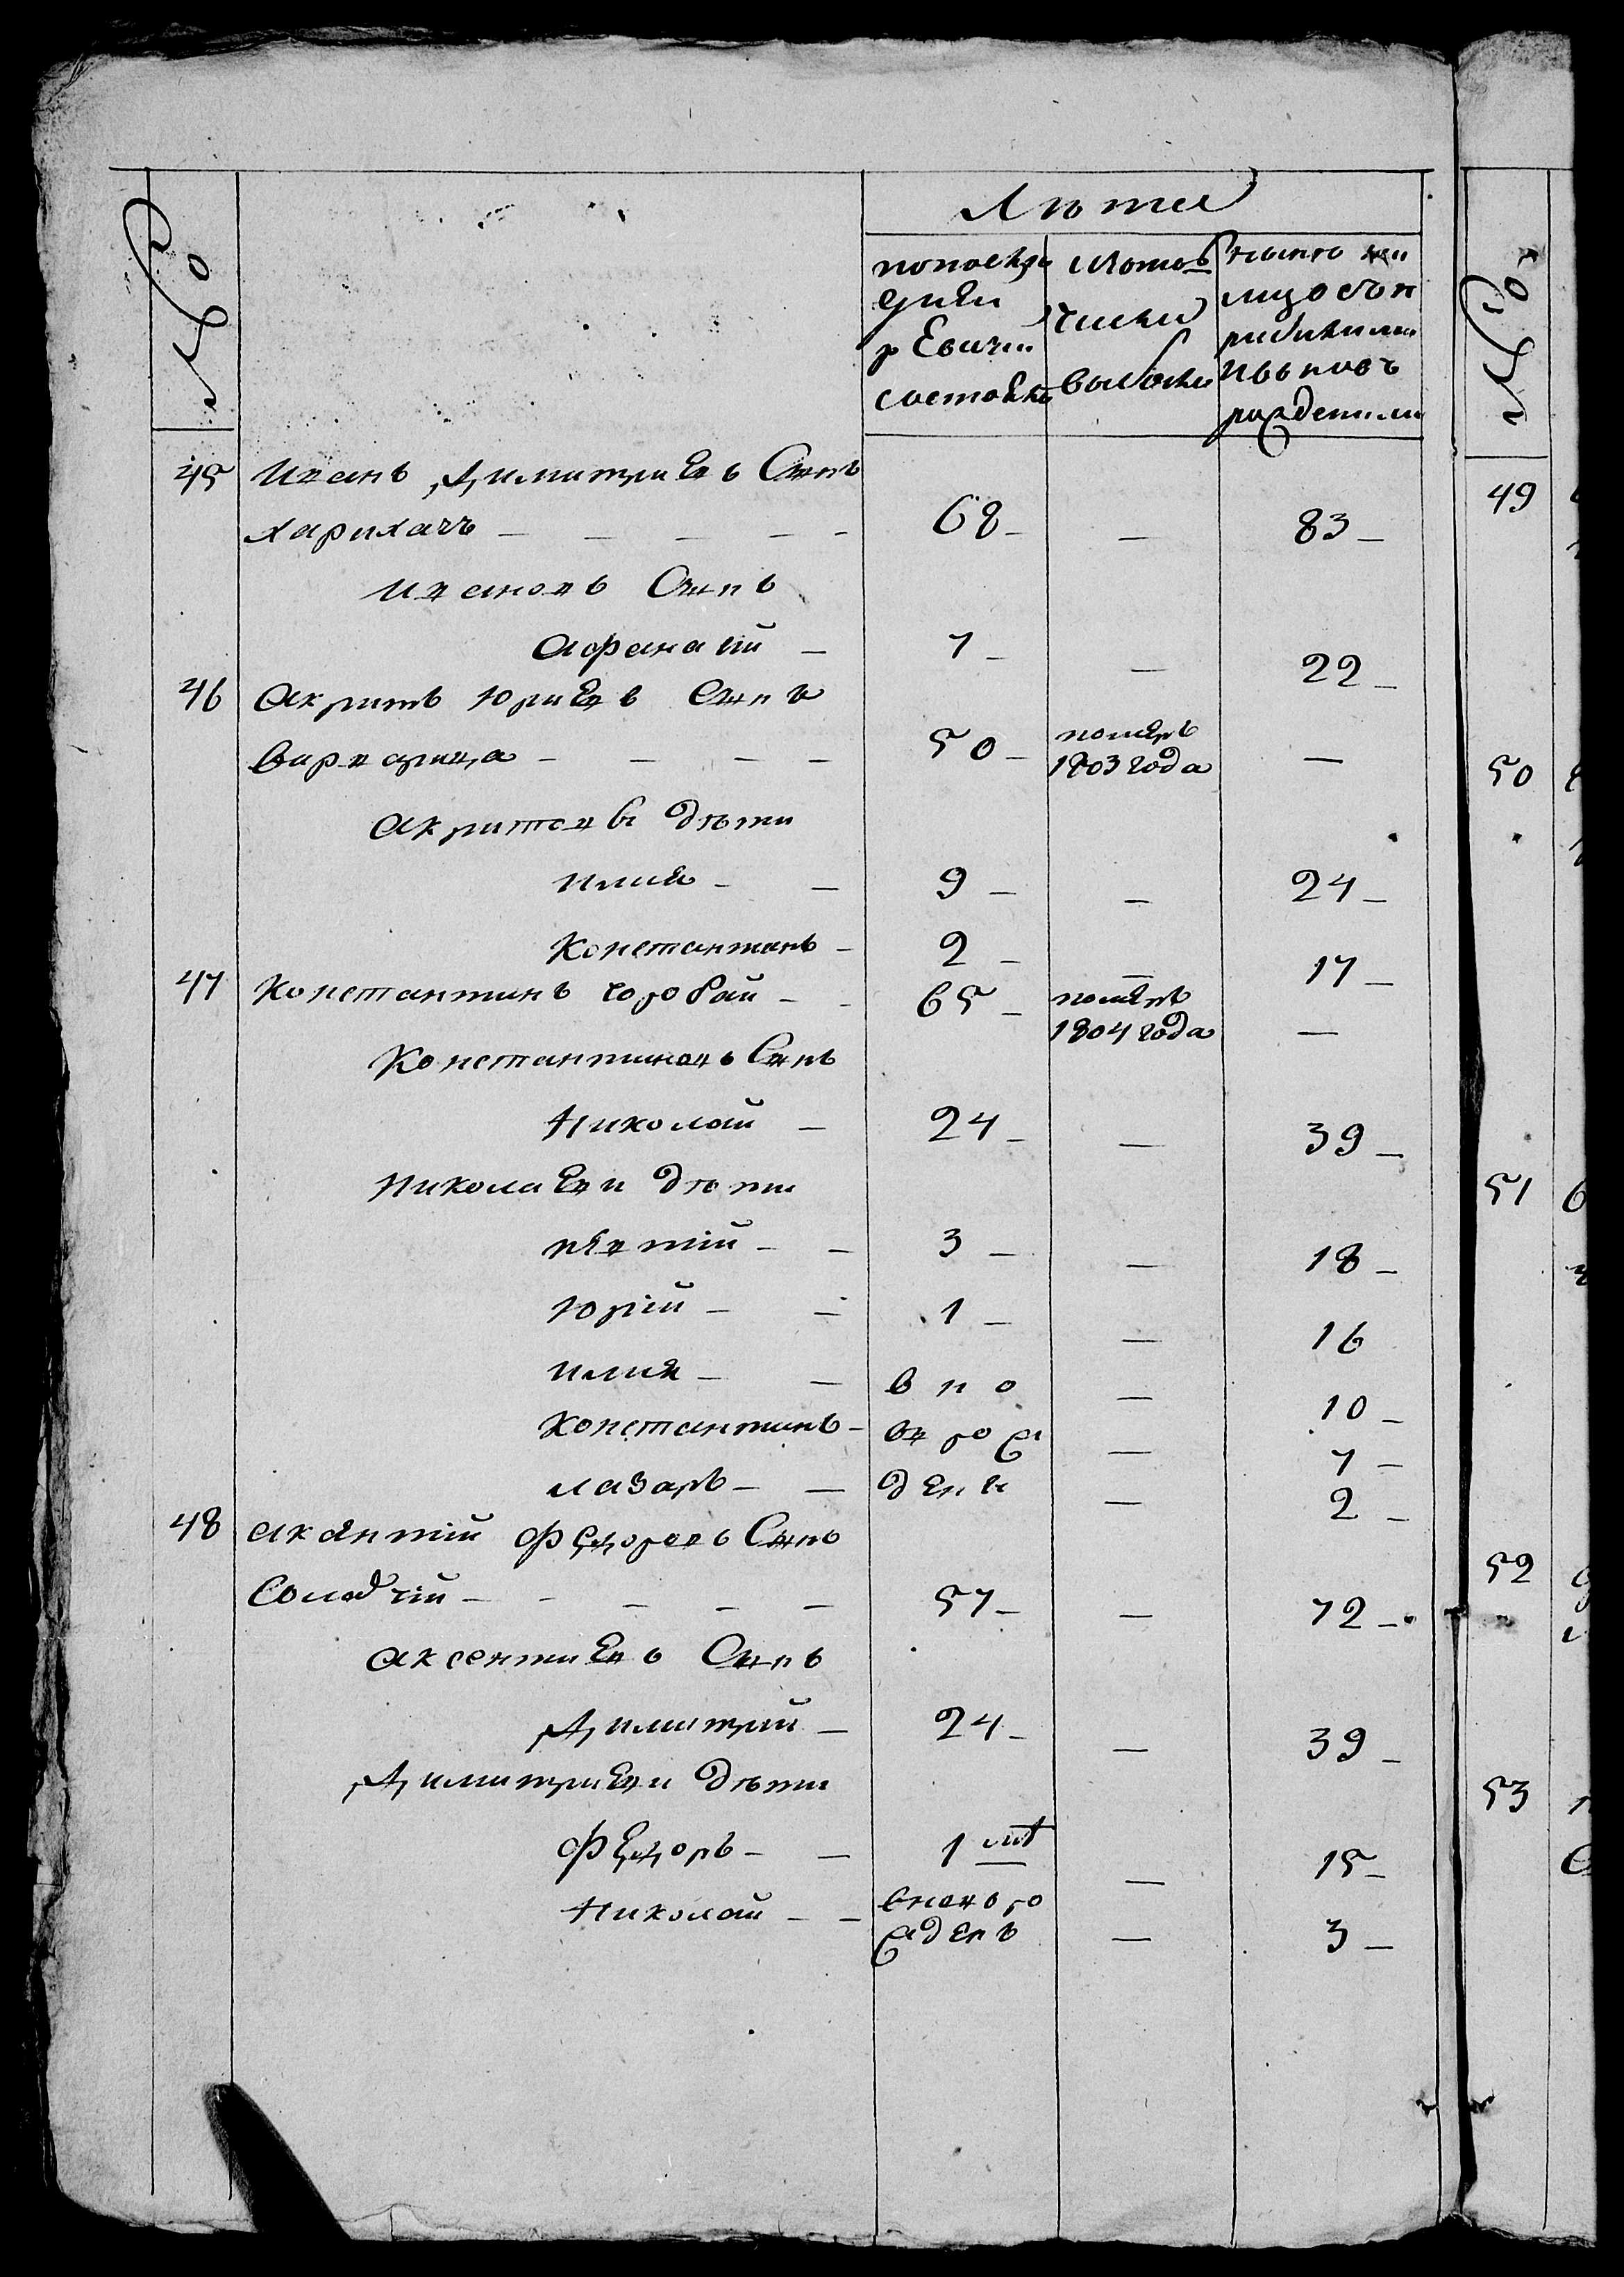 №
Лѣта
попослѣ
днѣи
рѣвизіи
состоял
изтого
числа
выбыли
нынѣ на
лицо сып
рибылими
ивновъ
рожденими
45 Иванъ Димитриевъ Сынъ
харихачъ — — — — — 68 — — 83 —
Ивановъ Сынъ
Афанасий — 7 — — 22 —
46 Акритъ Юриевъ Сынъ
Варварица — — — — 50 — померъ 1803 года —
Акритовы дѣти
Илия — — 9 — — 24 —
Константинъ — 2 — — 17 —
47 Константинъ Горобай — — 65 — померъ 1804 года —
Константиновъ Сынъ
Николай — 24 — — 39 —
Николаеви дѣти
Леѡнтій — — 3 — — 18 —
Юрій — — 1 — — 16
Илия — — вно — 10 —
Константинъ — въ рож — 7 —
лазаръ — — денъ — 2 —
48 аксентій Фѣдоровъ Сынъ
Солодчій — — — — — 57 — — 72 —
аксентиевъ Сынъ
Димитрий — 24 — — 39 —
Димитриеви дѣти
Фѣдоръ — — 1 — 15 —
Николай — — вновь рожденъ — 3 —
№
49
50
51
52
53